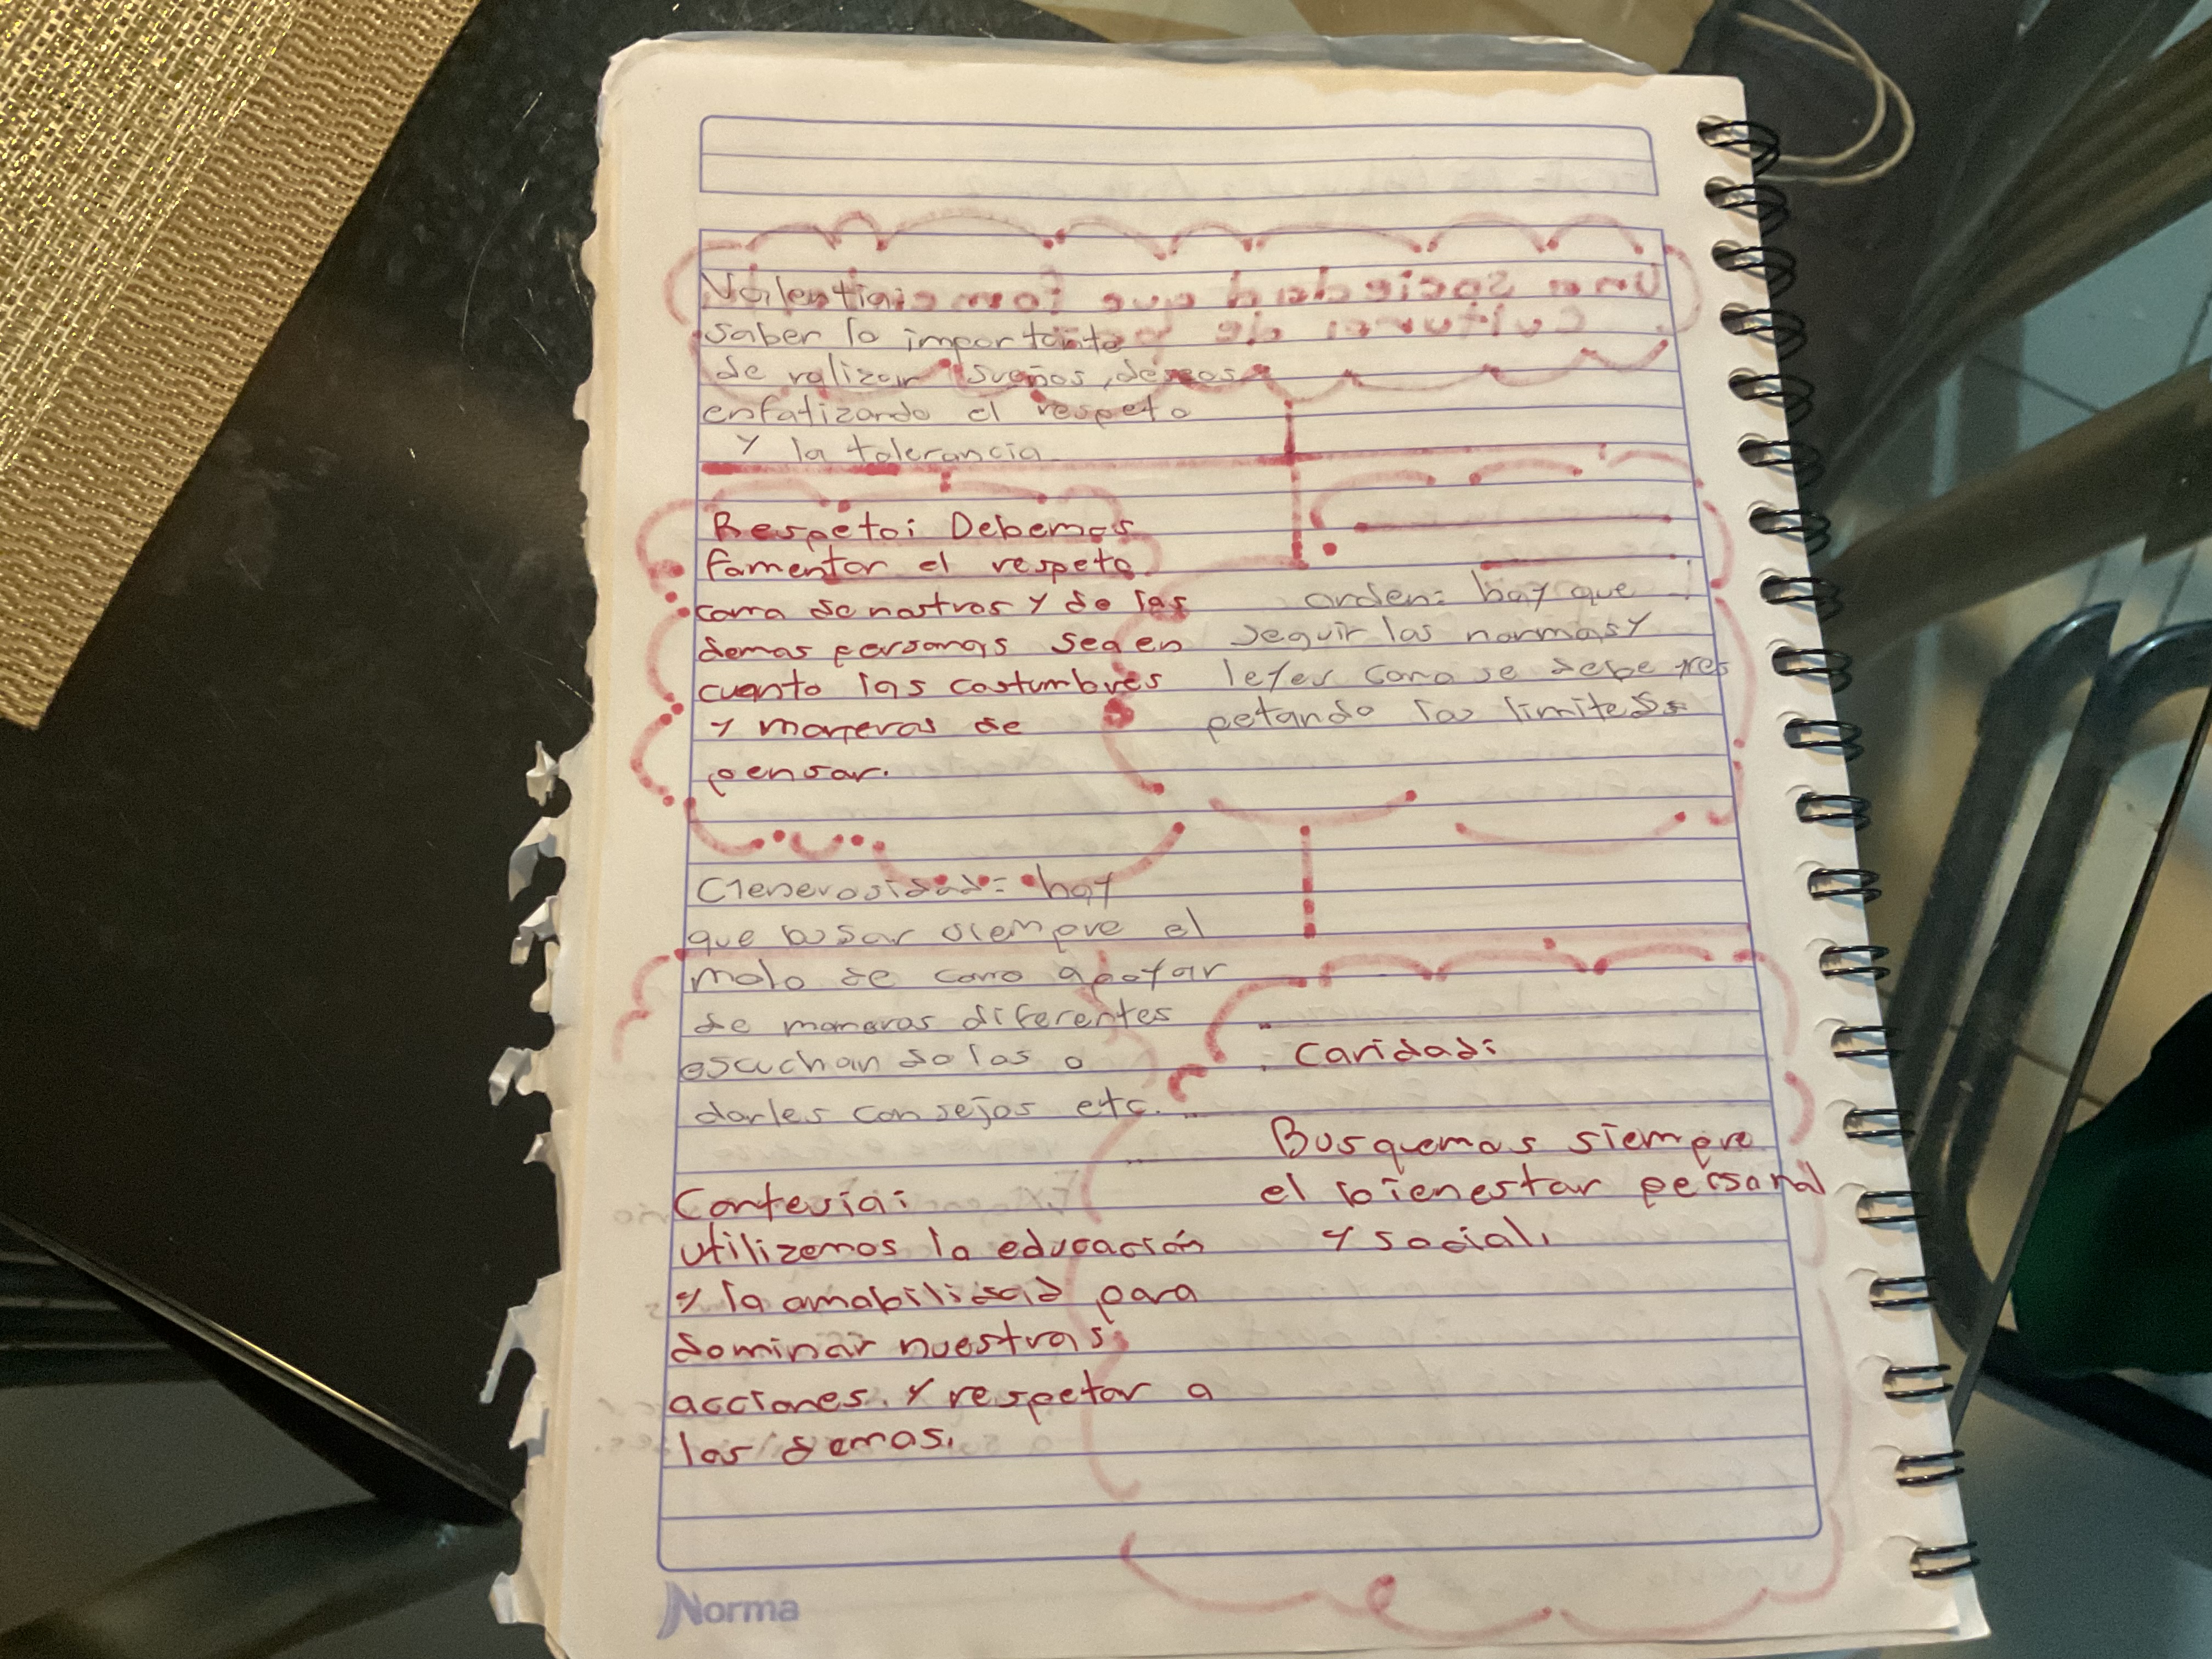 Valentia:
saber lo importante
de ralizar sueños, deseos
enfatizando el respeto
y la tolerancia
Respeto: Debemos
fomentar el respeto
como de nostros y de los
demas personas sea en
cuanto las costumbres
y maneras de
pensar.
orden: hay que
seguir las normas y
leyes como se debe res
petando los limites
Generosidad: hay
que busar siempre el
molo de como apoyar
de maneras diferentes
escuchandolos o
darles consejos etc.
Caridad:
Busquemos siempre
el bienestar personal
y social.
Cortesia:
utilizemos la educación
y la amabilidad para
dominar nuestras
acciones. y respetar a
los demas.
Norma